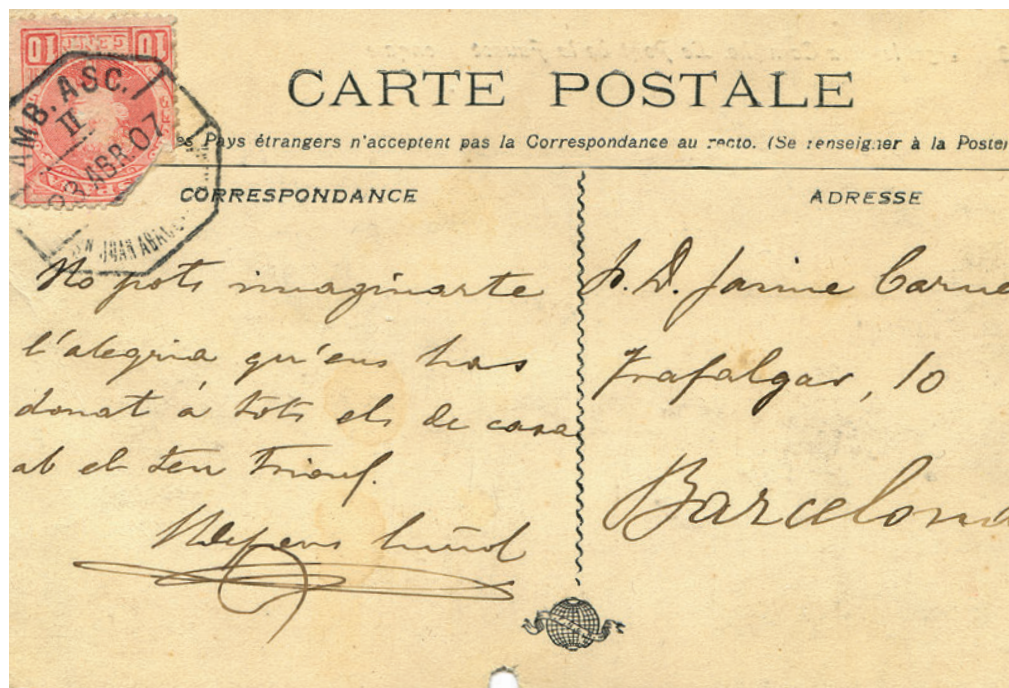 10 CENT. 10
AMB. ASC. 1
II
23 ABR. 07
CARTE POSTALE
es Pays étrangers n'acceptent pas la Correspondance au recto. (Se renseigner à la Poste)
CORRESPONDANCE
No pots imaginarte
l'alegria qu'ens has
donat á tots els de casa
ab el teu triouf.
ADRESSE
S. D. Jaime Carne
Trafalgar, 10
Barcelona